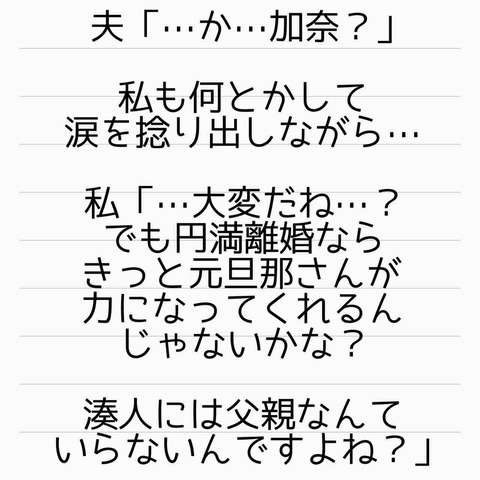 夫「…か…加奈？」
私も何とかして
涙を捻り出しながら…
私「…大変だね…？
でも円満離婚なら
きっと元旦那さんが
力になってくれるん
じゃないかな？
湊人には父親なんて
いらないんですよね？」